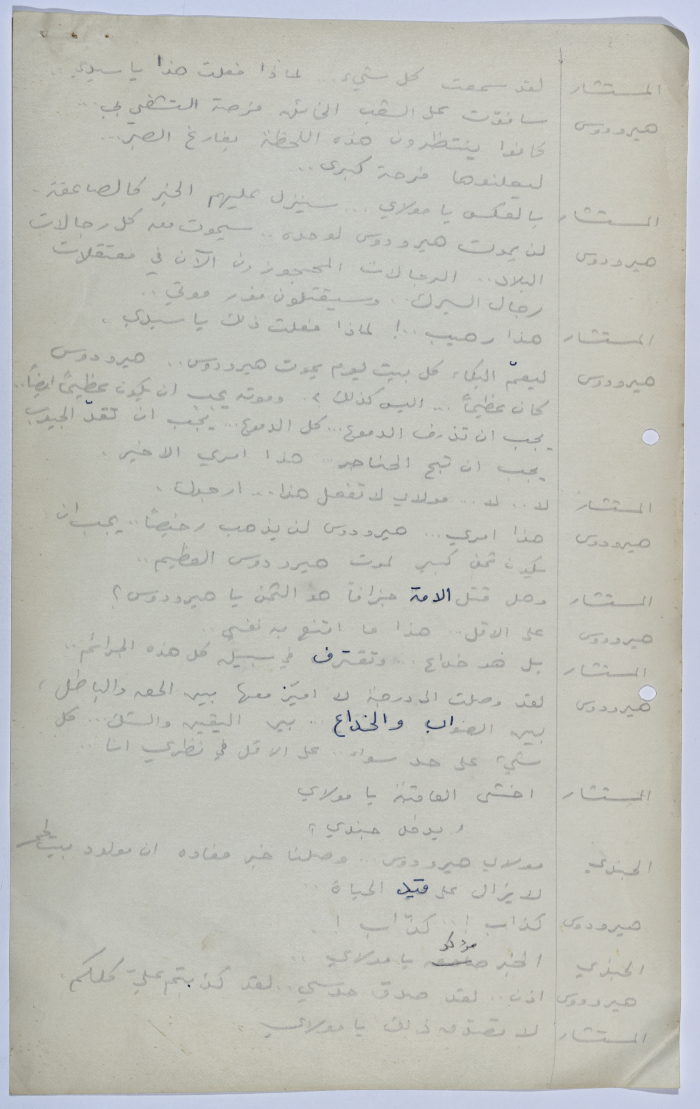 المستشار لقد سمعت كل شيء... لماذا فعلت هذا يا سيدي..
هيرودوس سافوّت على الشعب الخائن فرصة التشفي بي...
كانوا ينتظرون هذه اللحظة بفارغ الصبر...
ليعلنوها فرحة كبرى..
المستشار بالعكس يا مولاي... سينزل عليهم الخبر كالصاعقة.
هيرودوس لن يموت هيرودوس لوحده.. سيموت معه كل رجالات
البلاد.. الرجالات المحجوزون الآن في معتقلات
رجال السرك.. وسيقتلون فور موتي..
المستشار هذا رهيب..! لماذا فعلت ذلك يا سيدي.
هيرودوس ليعمّ البكاء كل بيت ليوم يموت هيرودوس.. هيرودوس
كان عظيماً... اليس كذلك؟. وموته يجب ان يكون عظيماً ايضاً..
يجب ان تذرف الدموع... كل الدموع... يجب ان تقدّ الجيوب
يجب ان تبح الحناجر... هذا امري الاخير.
المستشار لا.. لا.. مولاي لا تفعل هذا... ارجوك.
هيرودوس هذا امري... هيرودوس لن يذهب رخيصاً.. يجب ان
يكون ثمن كبير لموت هيرودوس العظيم..
المستشار وهل قتل الامة جزافاً هو الثمن يا هيرودوس؟
هيرودوس على الاقل.. هذا ما اقنع به نفسي..
المستشار بل هو خداع.. وتقترف في سبيله كل هذه الجرائم..
هيرودوس لقد وصلت الى درجة لا اميّز معها بين الحق والباطل،
بين الصواب والخداع.. بين اليقين والشك... كل
شيء على حد سواء.. على الاقل في نظري انا...
المستشار اخشى العاقبة يا مولاي
( يدخل جندي )
الجندي مولاي هيرودوس.. وصلنا خبر مفاده ان مولود بيت لحم
لا يزال على قيد الحياة..
هيرودوس كذاب!.. كذّاب!.
الجندي الخبر مؤكد يا مولاي..
هيرودوس اذن.. لقد صدق حدسي.. لقد كذبتم عليّ كلكم.
المستشار لا تصدّق ذلك يا مولاي.